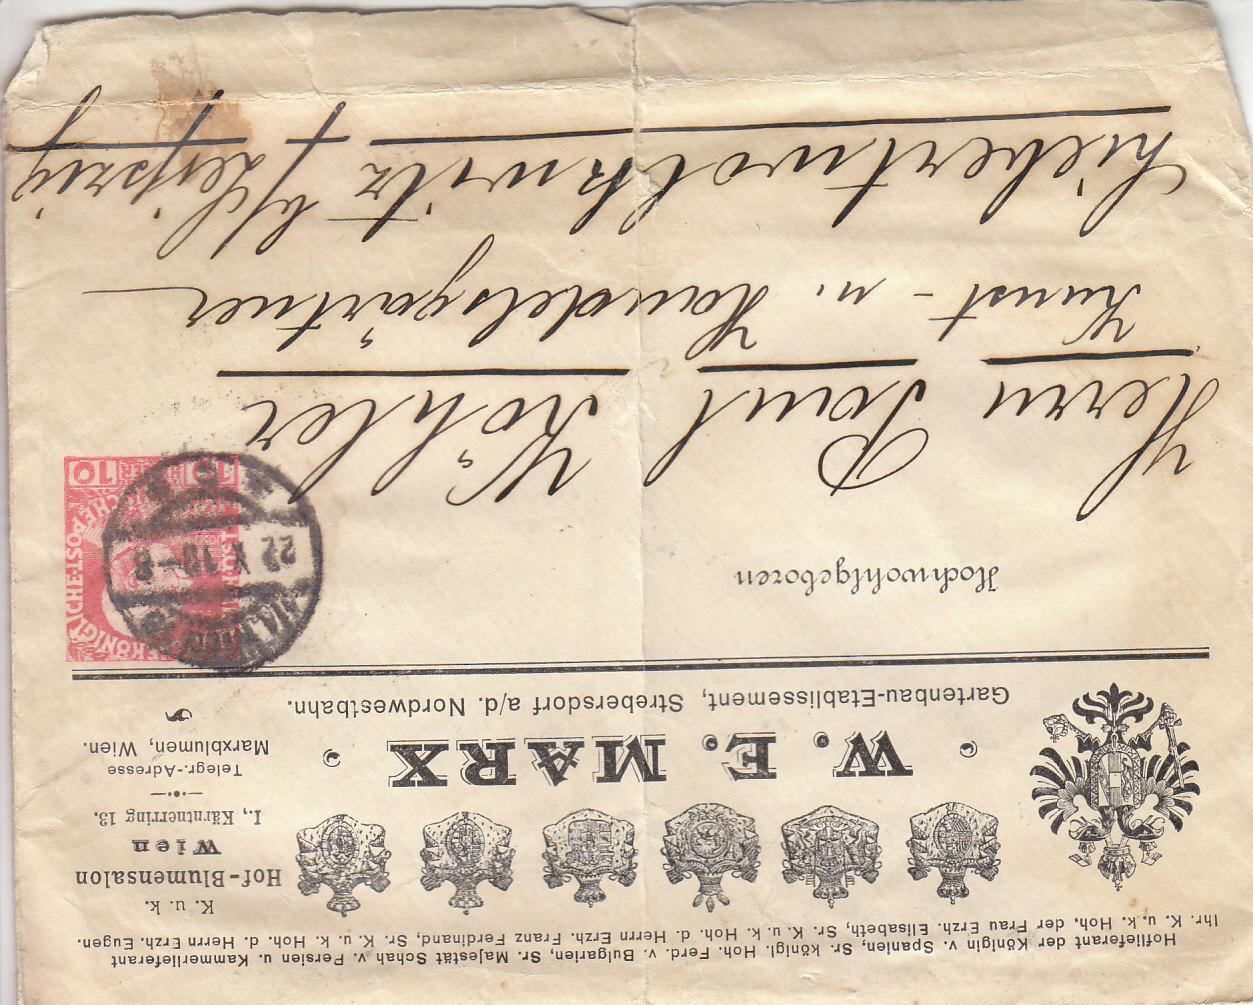 Hoflieferant der Königin v. Spanien, Sr. königl. Hoh. Ferd. v. Bulgarien, Sr. Majestät Schah v. Persien u. Kammerlieferant
Ihr. K. u. k. Hoh. der Frau Erzh. Elisabeth, Sr. K. u. k. Hoh. d. Herrn Erzh. Franz Ferdinand, Sr. K. u. k. Hoh. d. Herrn Erzh. Eugen.
W. E. MARX
Gartenbau-Etablissement, Strebersdorf a/d. Nordwestbahn.
K. u. k.
Hof-Blumensalon
Wien
I., Kärntnerring 13.
Telegr.-Adresse
Marxblumen, Wien.
Hochwohlgeboren
22 X 10-8
10 10
Herrn Paul Köhler
Kunst- u. Handelsgärtner
Liebertwolkwitz b/Leipzig